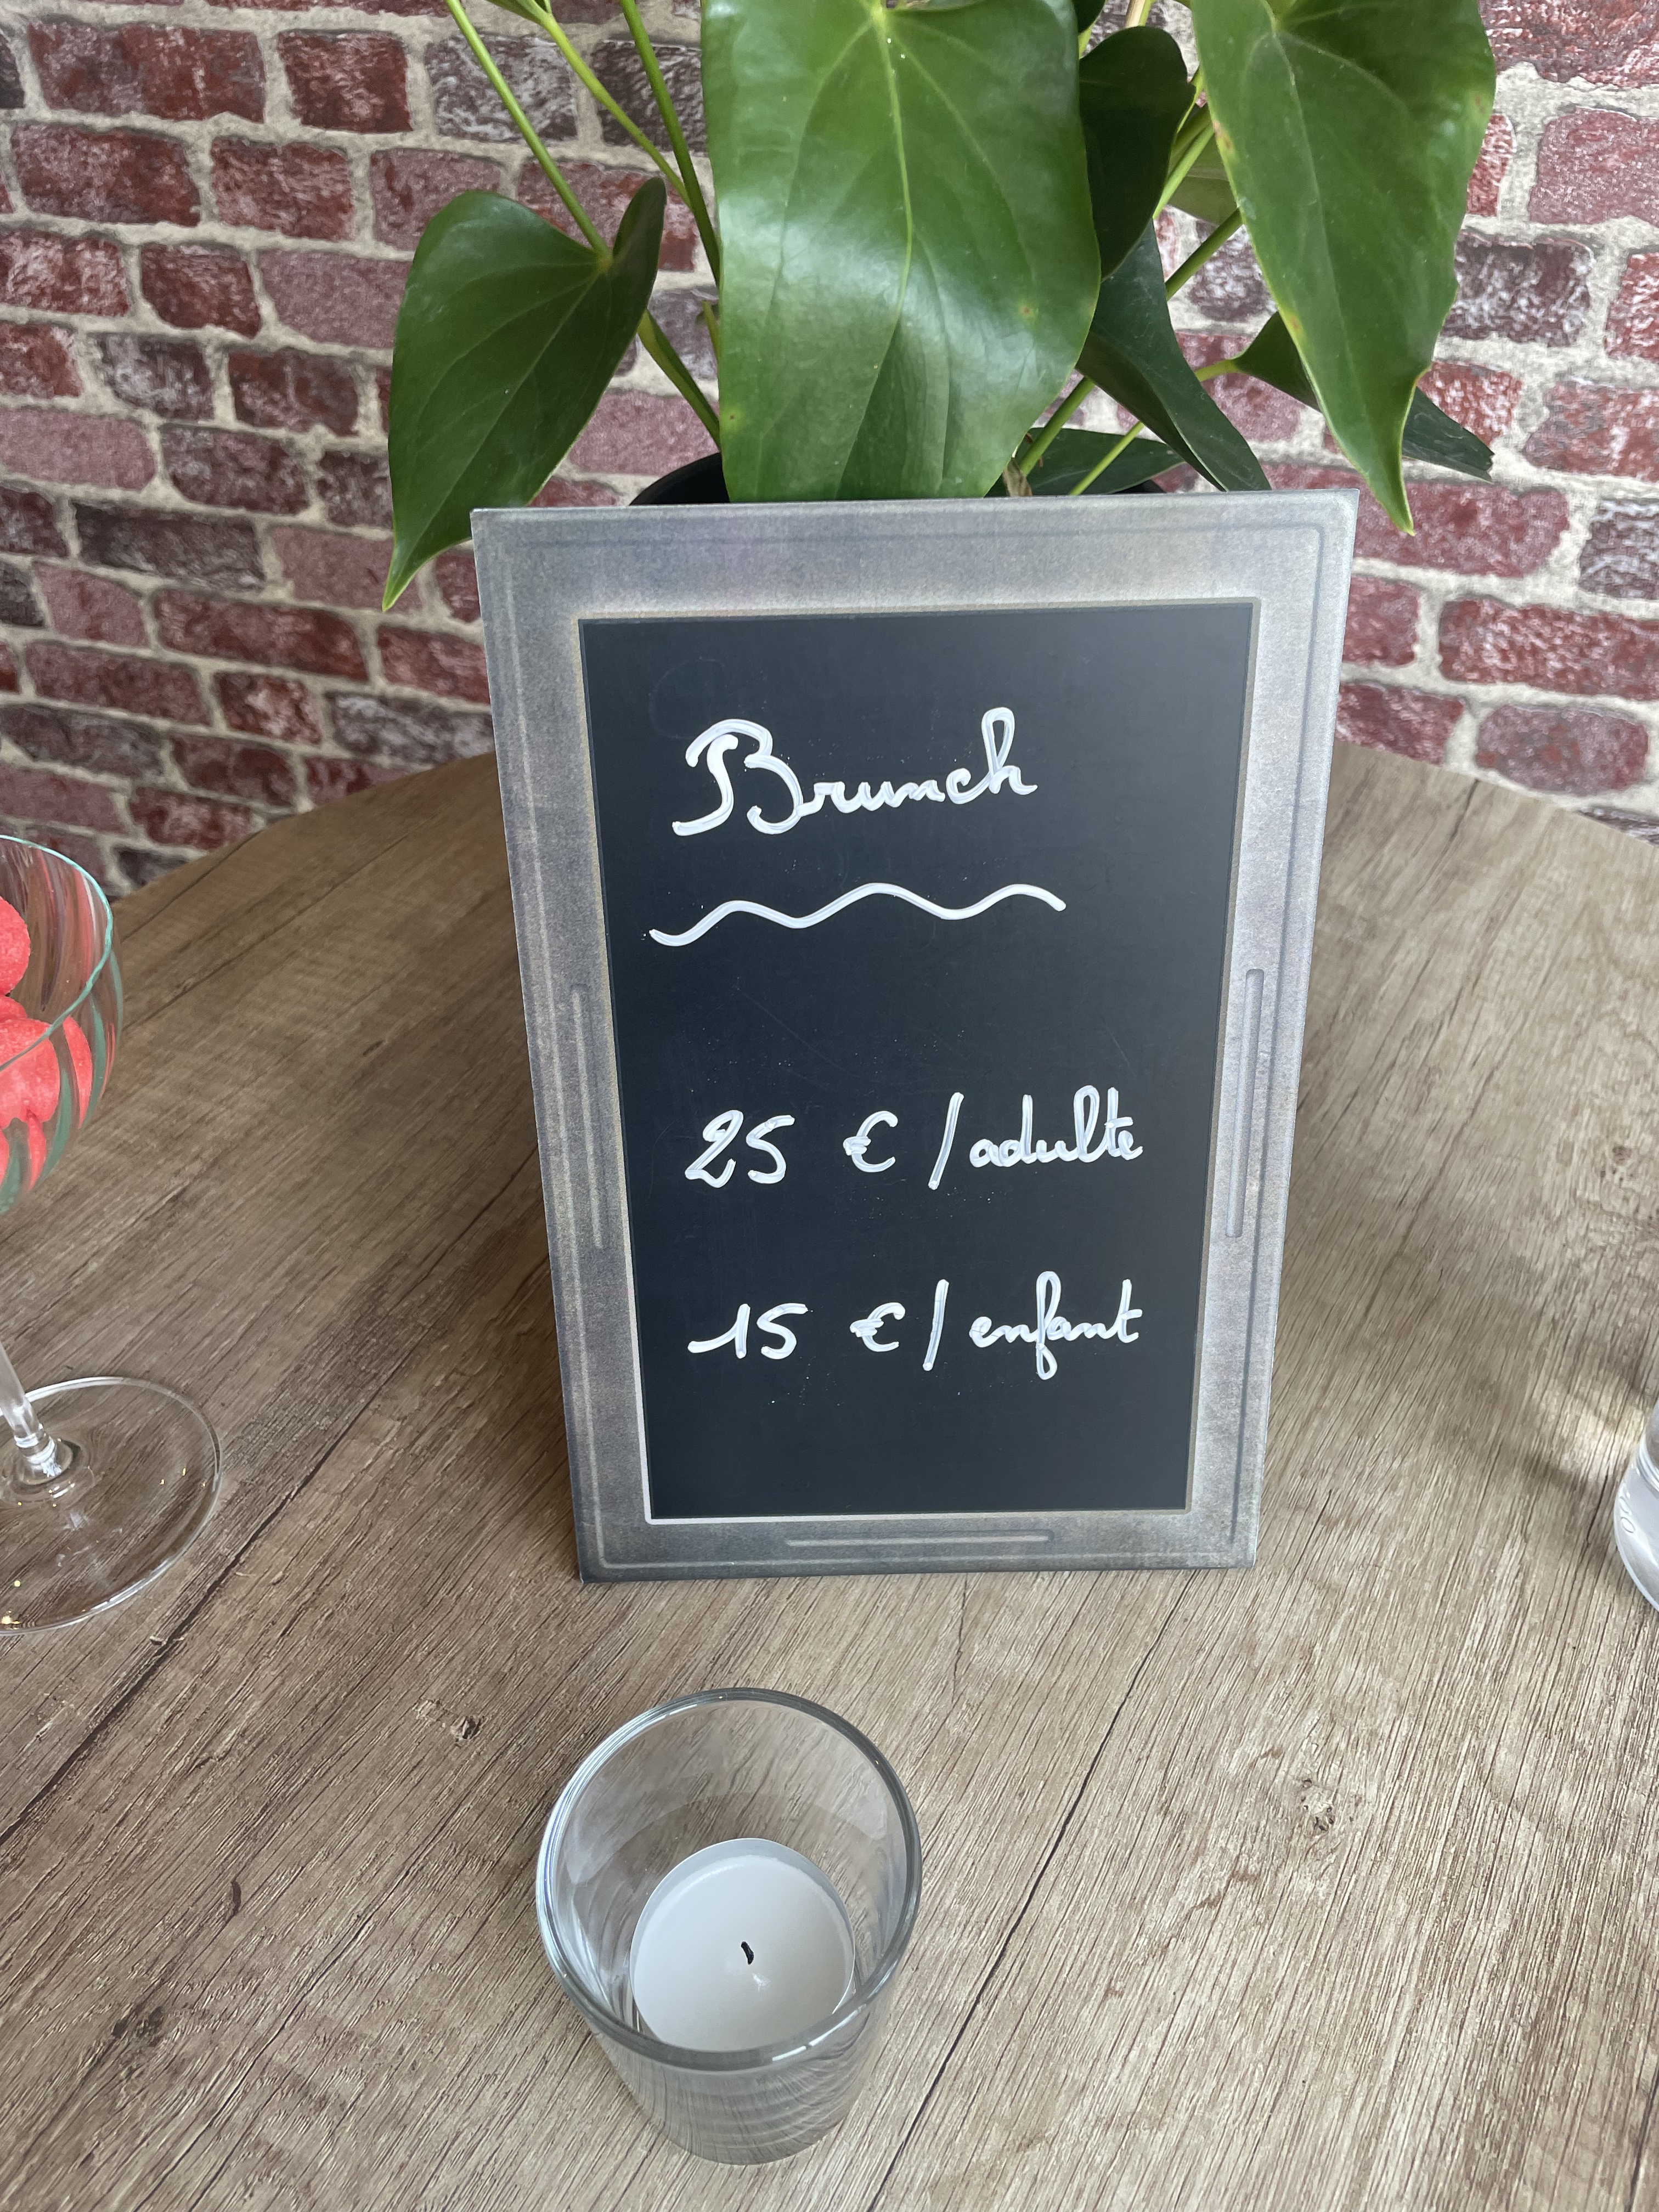 Brunch
25 €/adulte
15 €/enfant